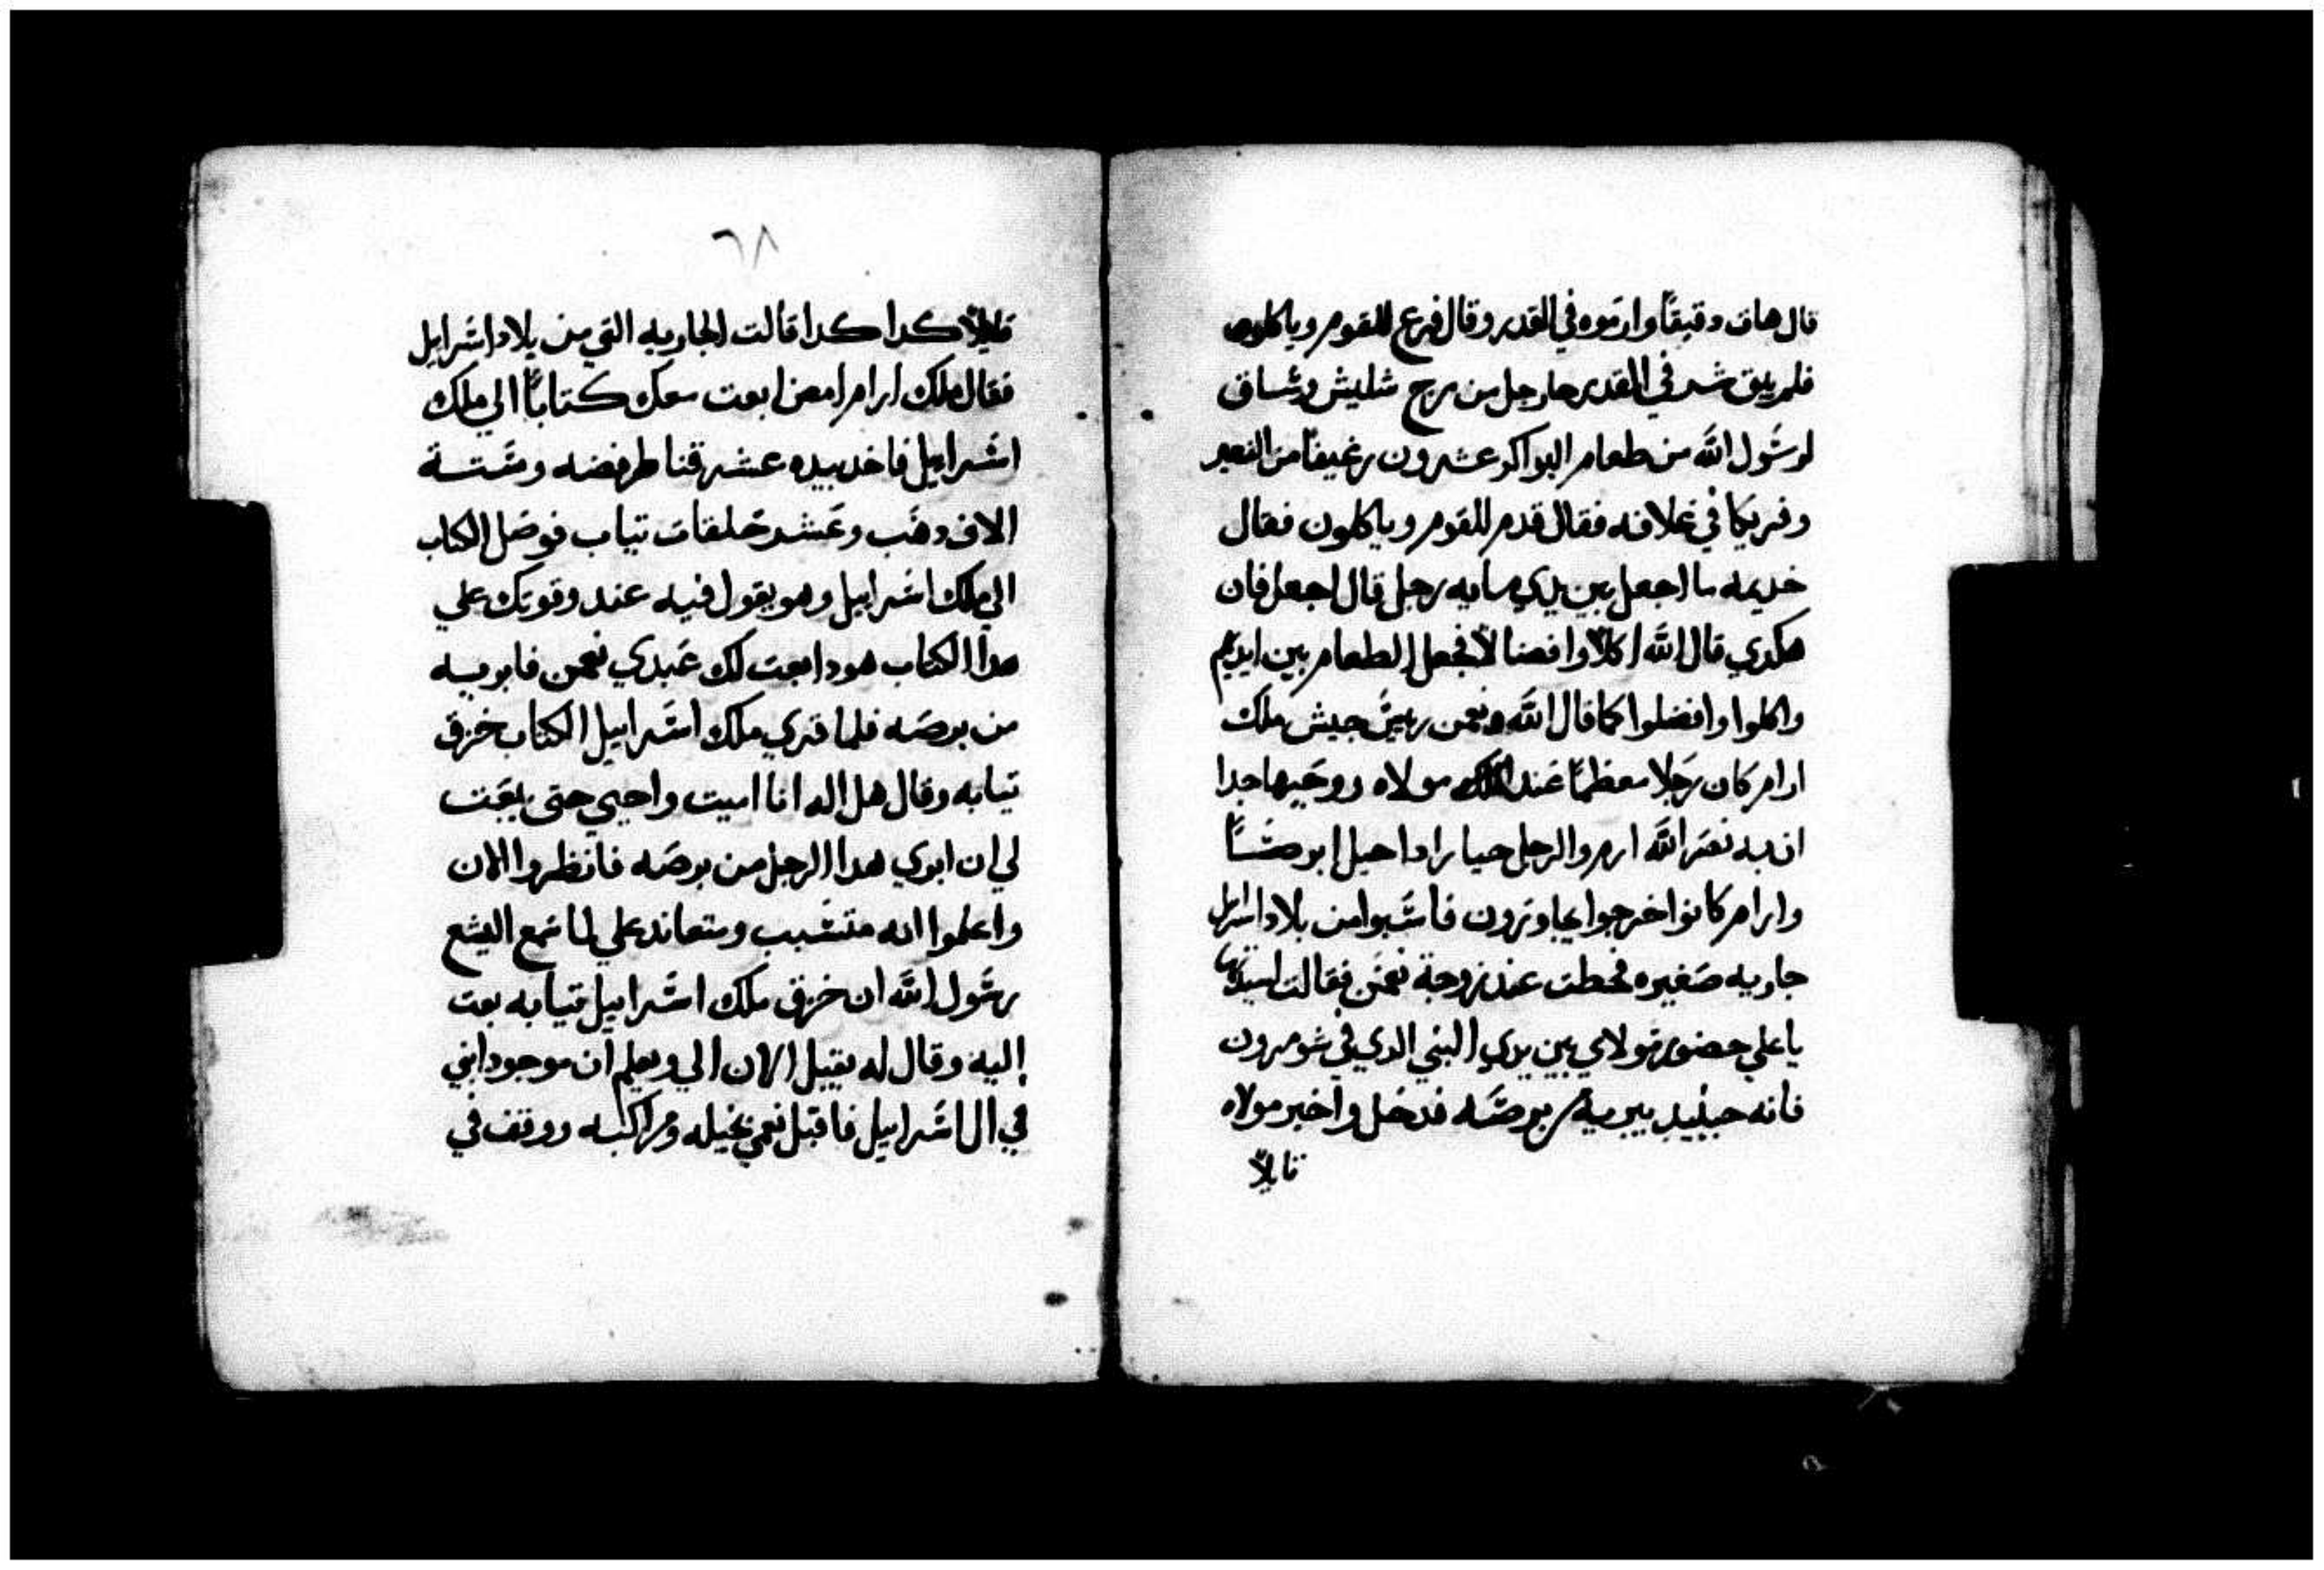 قال هات دقيقًا وارموه في القدر وقال فرع للقوم وياكلون
فلم يبق شر في القدر جا رجل من مرج شليش وساق
لرسول الله من طعام البواكر عشرون رغيفًا من الشعير
وفريكا في غلافه فقال قدم للقوم وياكلون فقال
خديمه ما اجعل بين يدي مايه رجل قال اجعل فان
هكدي قال الله اكلا وافضالا فجعل الطعام بين ايديهم
واكلوا وافضلوا كما قال الله ونعمن رييس جيش ملك
ارام كان رجلا معظمًا عند مولاه ووجيها جدا
ان به نصر الله ارم والرجل جبارا دا حيل ابرصًا
وارام كانوا خرجوا يجاوزون فاسبوا من بلاد اسرايل
جاريه صغيره فحطت عند زوجة نعمن فقالت لسيدتها
يا علي حضور مولاي بين يدي النبي الدي في شومرون
فانه حينيد يبريه من برصه فدخل واخبر مولاه
قايلاً
٦٨
قايلاً كدا كدا قالت الجاريه التي من بلاد اسرايل
فقال ملك ارام امض ابعت معك كتابًا الي ملك
اسرايل فاخد بيده عشر قناطر فضه وستة
الاف دهب وعشر خلفات تياب فوصل الكتاب
الي ملك اسرايل وهو يقول فيه عند وقوتك علي
هدا الكتاب هودا بعت لك عبدي نعمن فابريه
من برصه فلما قري ملك اسرايل الكتاب خزق
تيابه وقال هل اله انا اميت واحيي حتى يبعت
لي ان ابري هدا الرجل من برصه فانظروا الان
واعلموا انه متسبب ومتعاند علي لما سمع اليشع
رسول الله ان خزق ملك اسرايل تيابه بعت
إليه وقال له يقبل الان الي ويعلم ان موجود نبي
في ال اسرايل فاقبل نعمن بخيله ومراكبه ووقف في